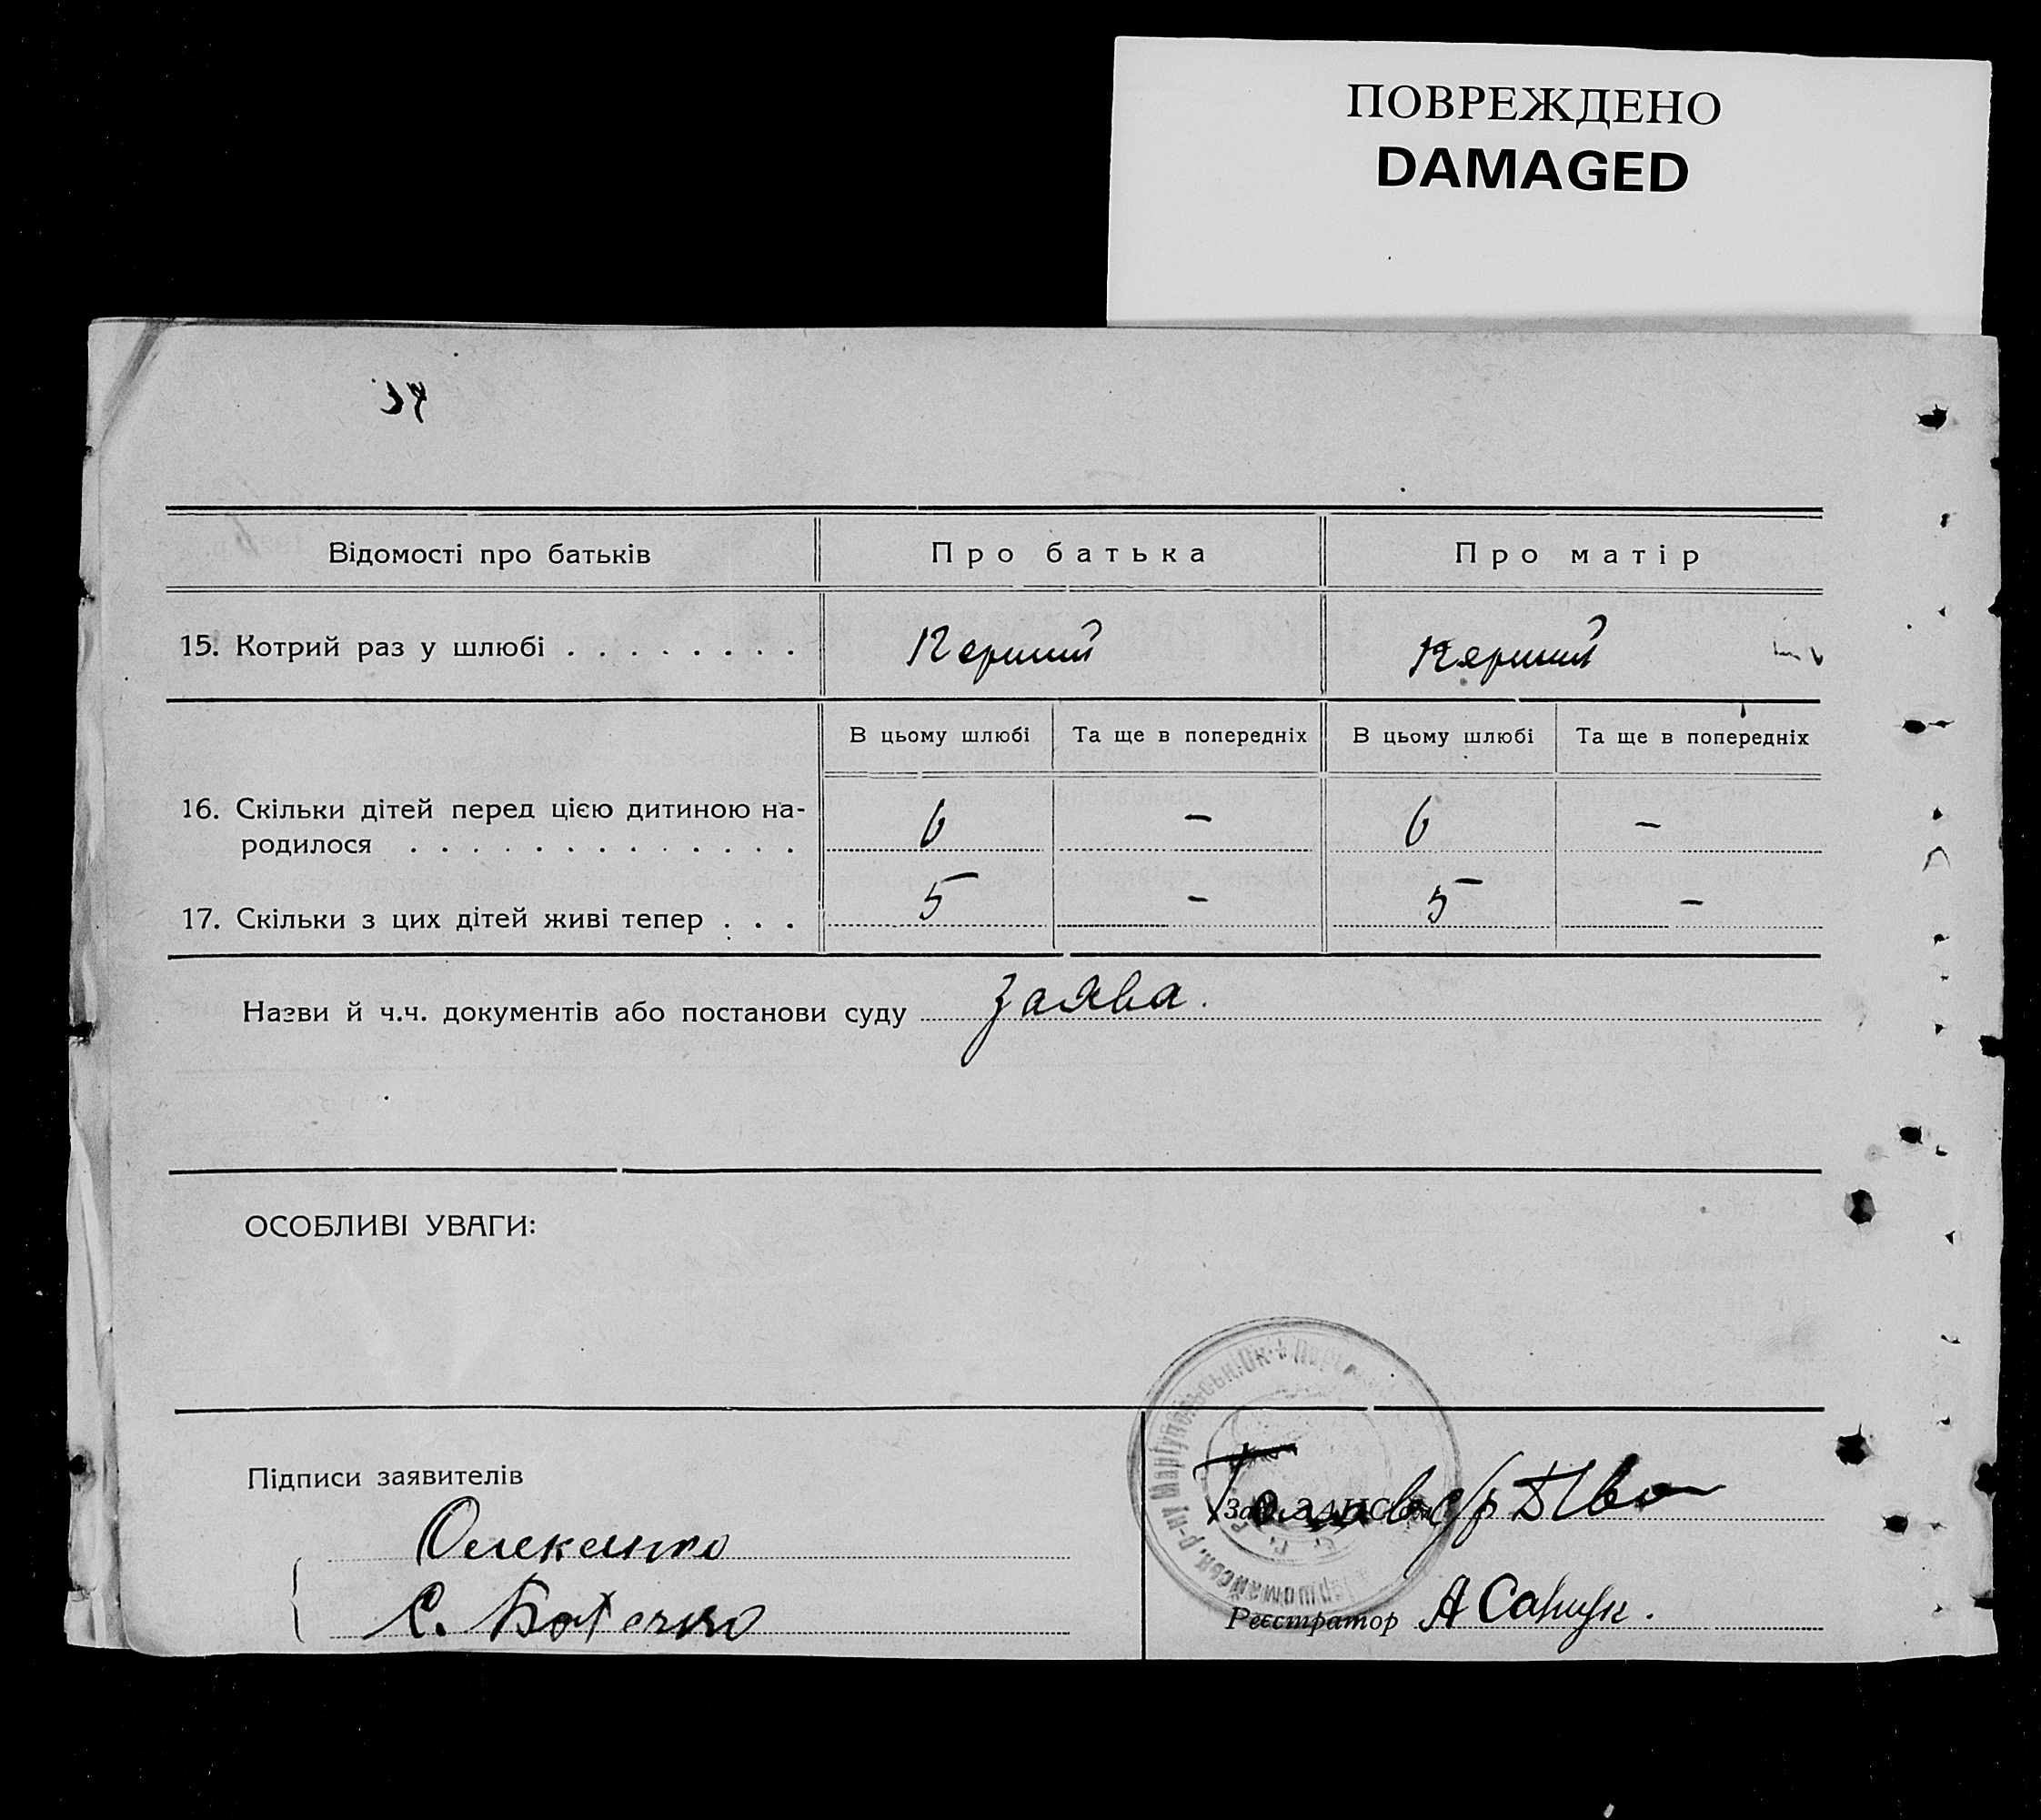 ПОВРЕЖДЕНО
DAMAGED
37
Відомості про батьків Про батька Про матір
15. Котрий раз у шлюбі . . . . . . . . Перший Перший
В цьому шлюбі Та ще в попередніх В цьому шлюбі Та ще в попередніх
16. Скільки дітей перед цією дитиною на-
родилося . . . . . . . . . . . . . 6 - 6 -
17. Скільки з цих дітей живі тепер . . . 5 - 5 -
Назви й ч.ч. документів або постанови суду заява.
ОСОБЛИВІ УВАГИ:
Маріупольськ. Ок.
р-ну
Підписи заявителів
Зав. ЗАГС
Голова с/р
Реєстратор А
С.